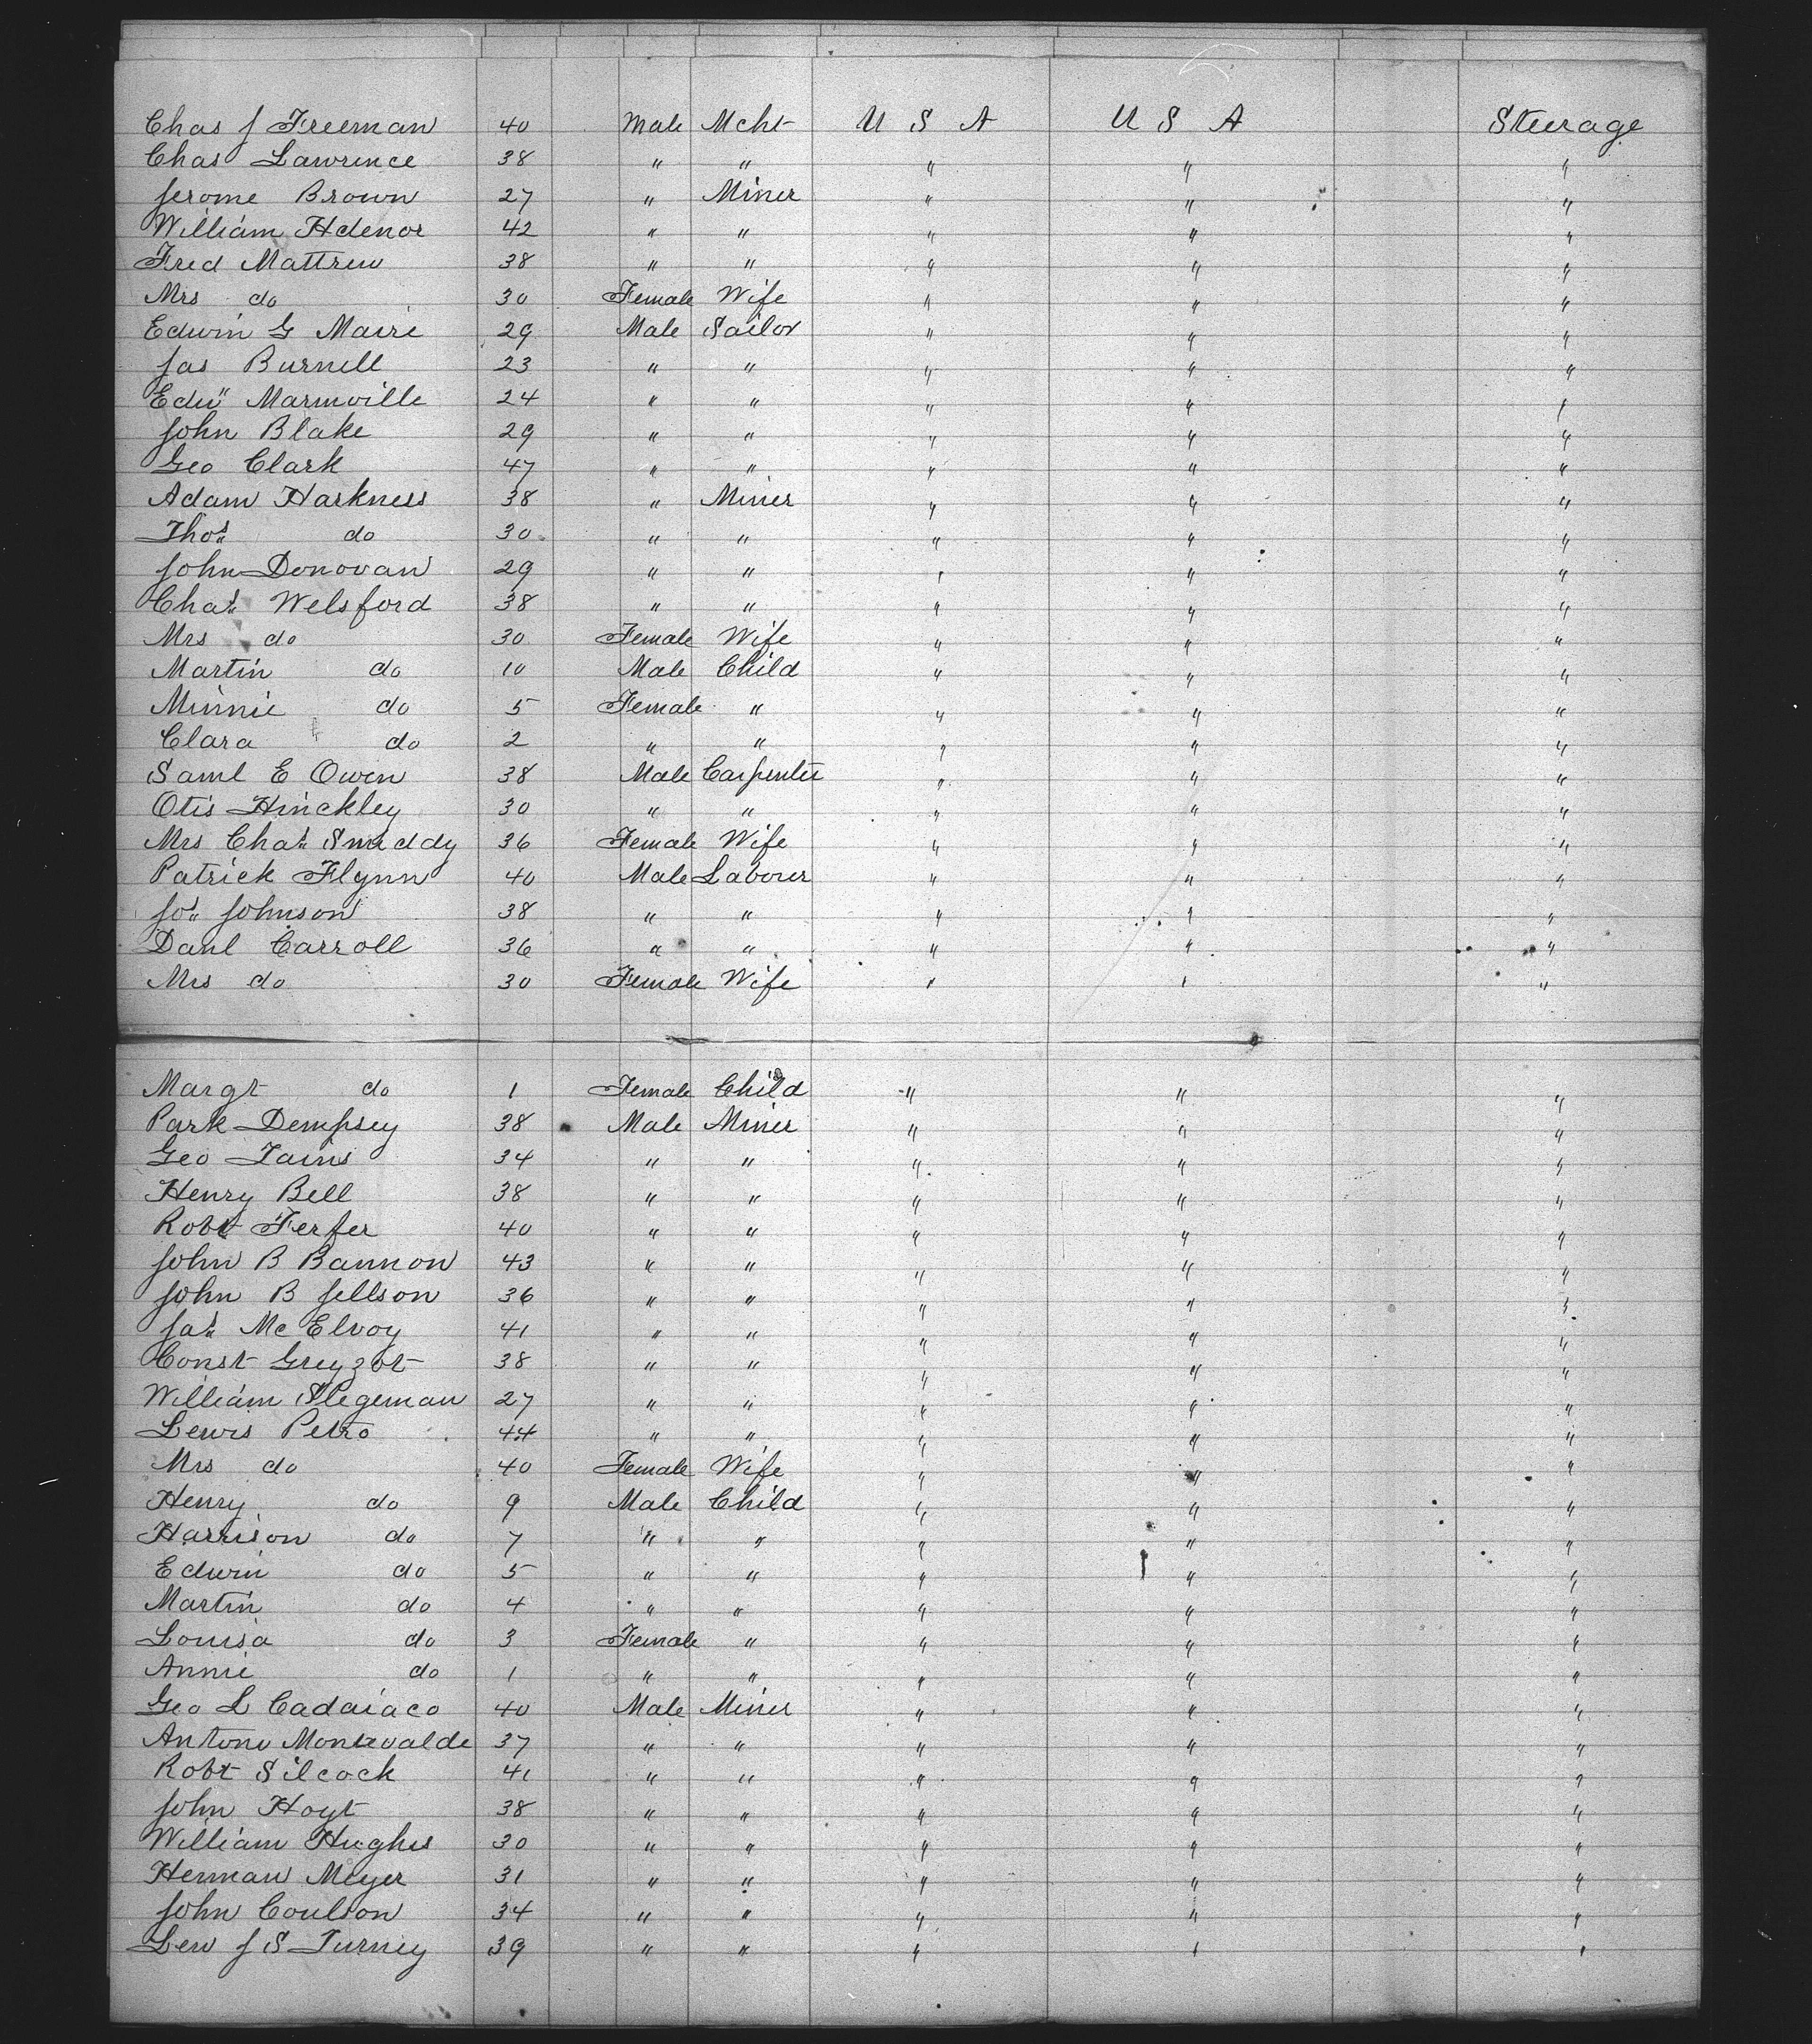 Chas J Freeman 40 Male Mcht U S A U S A Steerage
Chas Lawrence 38 " " " " "
Jerome Brown 27 " Miner " " "
William Hdenor 42 " " " " "
Fred Mattrew 38 " " " " "
Mrs do 30 Female Wife " " "
Edwin G Maire 29 Male Sailor " " "
Jas Burnell 23 " " " " "
Edw" Marmville 24 " " " " "
John Blake 29 " " " " "
Geo Clark 47 " " " " "
Adam Harkness 38 " Miner " " "
Thos do 30 " " " " "
John Donovan 29 " " " " "
Chas Welsford 38 " " " " "
Mrs do 30 Female Wife " " "
Martin do 10 Male Child " " "
Minnie do 5 Female " " " "
Clara do 2 " " " " "
Saml E Owen 38 Male Carpenter " " "
Otis Hinckley 30 " " " " "
Mrs Chas Smeddy 36 Female Wife " " "
Patrick Flynn 40 Male Laborer " " "
Jos Johnson 38 " " " " "
Danl Carroll 36 " " " " "
Mrs do 30 Female Wife " " "
Margt do 1 Female Child " " "
Park Dempsey 38 Male Miner " " "
Geo Tains 34 " " " " "
Henry Bell 38 " " " " "
Robt Ferfer 40 " " " " "
John B Bannon 43 " " " " "
John B Jellson 36 " " " " "
Jas McElvoy 41 " " " " "
Const Greyzot 38 " " " " "
William Slegeman 27 " " " " "
Lewis Petro 44 " " " " "
Mrs do 40 Female Wife " " "
Henry do 9 Male Child " " "
Harrison do 7 " " " " "
Edwin do 5 " " " " "
Martin do 4 " " " " "
Louisa do 3 Female " " " "
Annie do 1 " " " " "
Geo L Cadaiaco 40 Male Miner " " "
Antone Montevalde 37 " " " " "
Robt Silcock 41 " " " " "
John Hoyt 38 " " " " "
William Hughes 30 " " " " "
Herman Meyer 31 " " " " "
John Coulson 34 " " " " "
Lew J S Turney 39 " " " " "